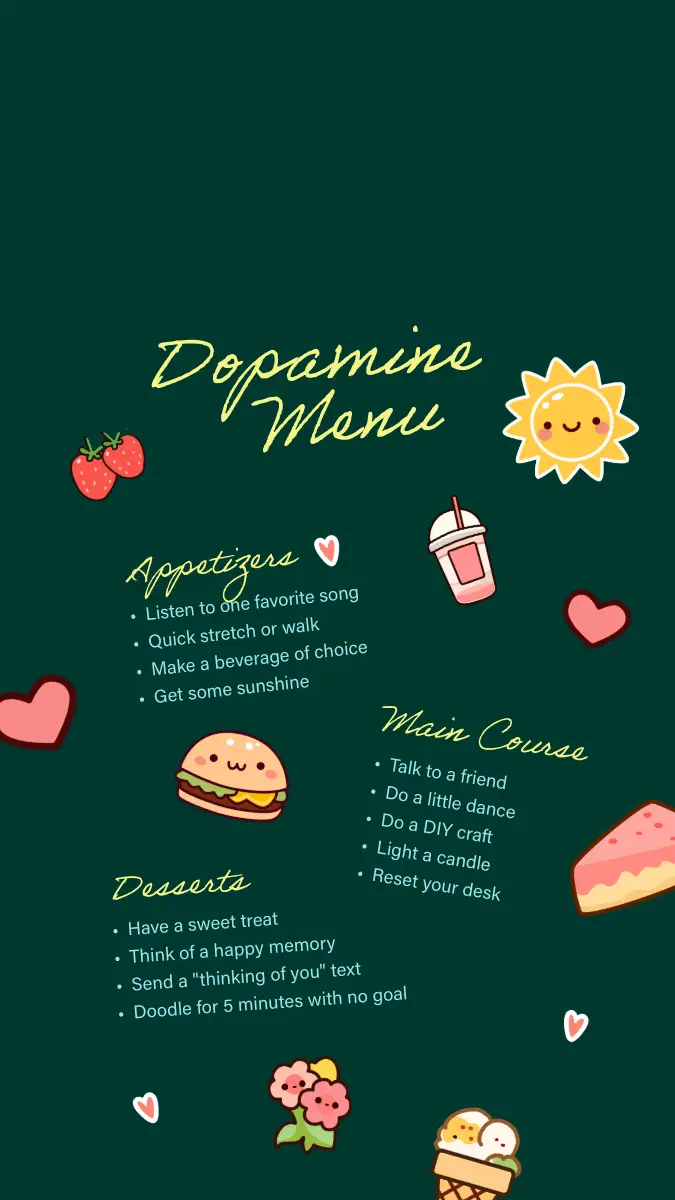 Dopamine
Menu
Appetizers
• Listen to one favorite song
• Quick stretch or walk
• Make a beverage of choice
• Get some sunshine
Main Course
• Talk to a friend
• Do a little dance
• Do a DIY craft
• Light a candle
• Reset your desk
Desserts
• Have a sweet treat
• Think of a happy memory
• Send a "thinking of you" text
• Doodle for 5 minutes with no goal